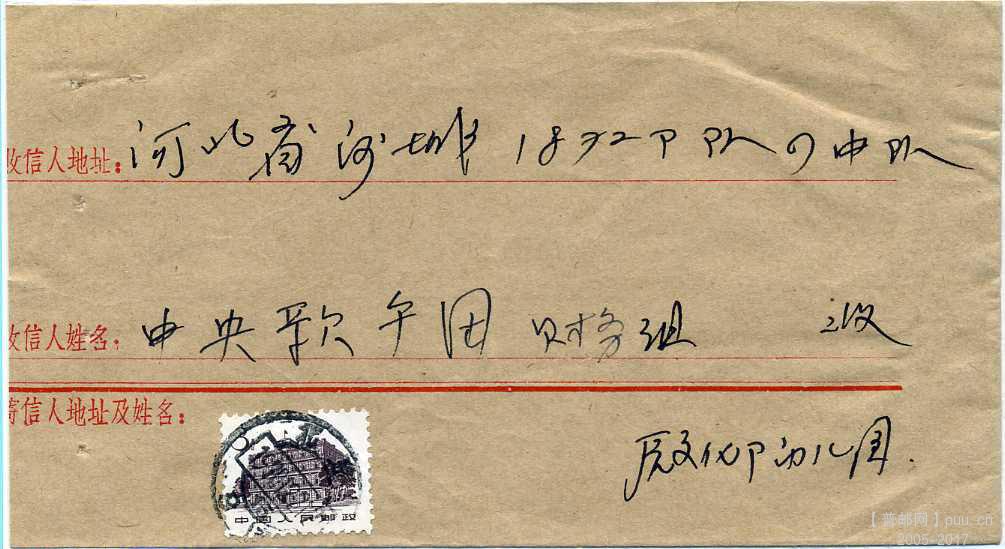 收信人地址：河北省涉城1892部队4中队
收信人姓名：中央歌午团财务组 收
寄信人地址及姓名：
化卩幼儿园.
中国人民邮政
【普邮网】puu.cn
2005-2017